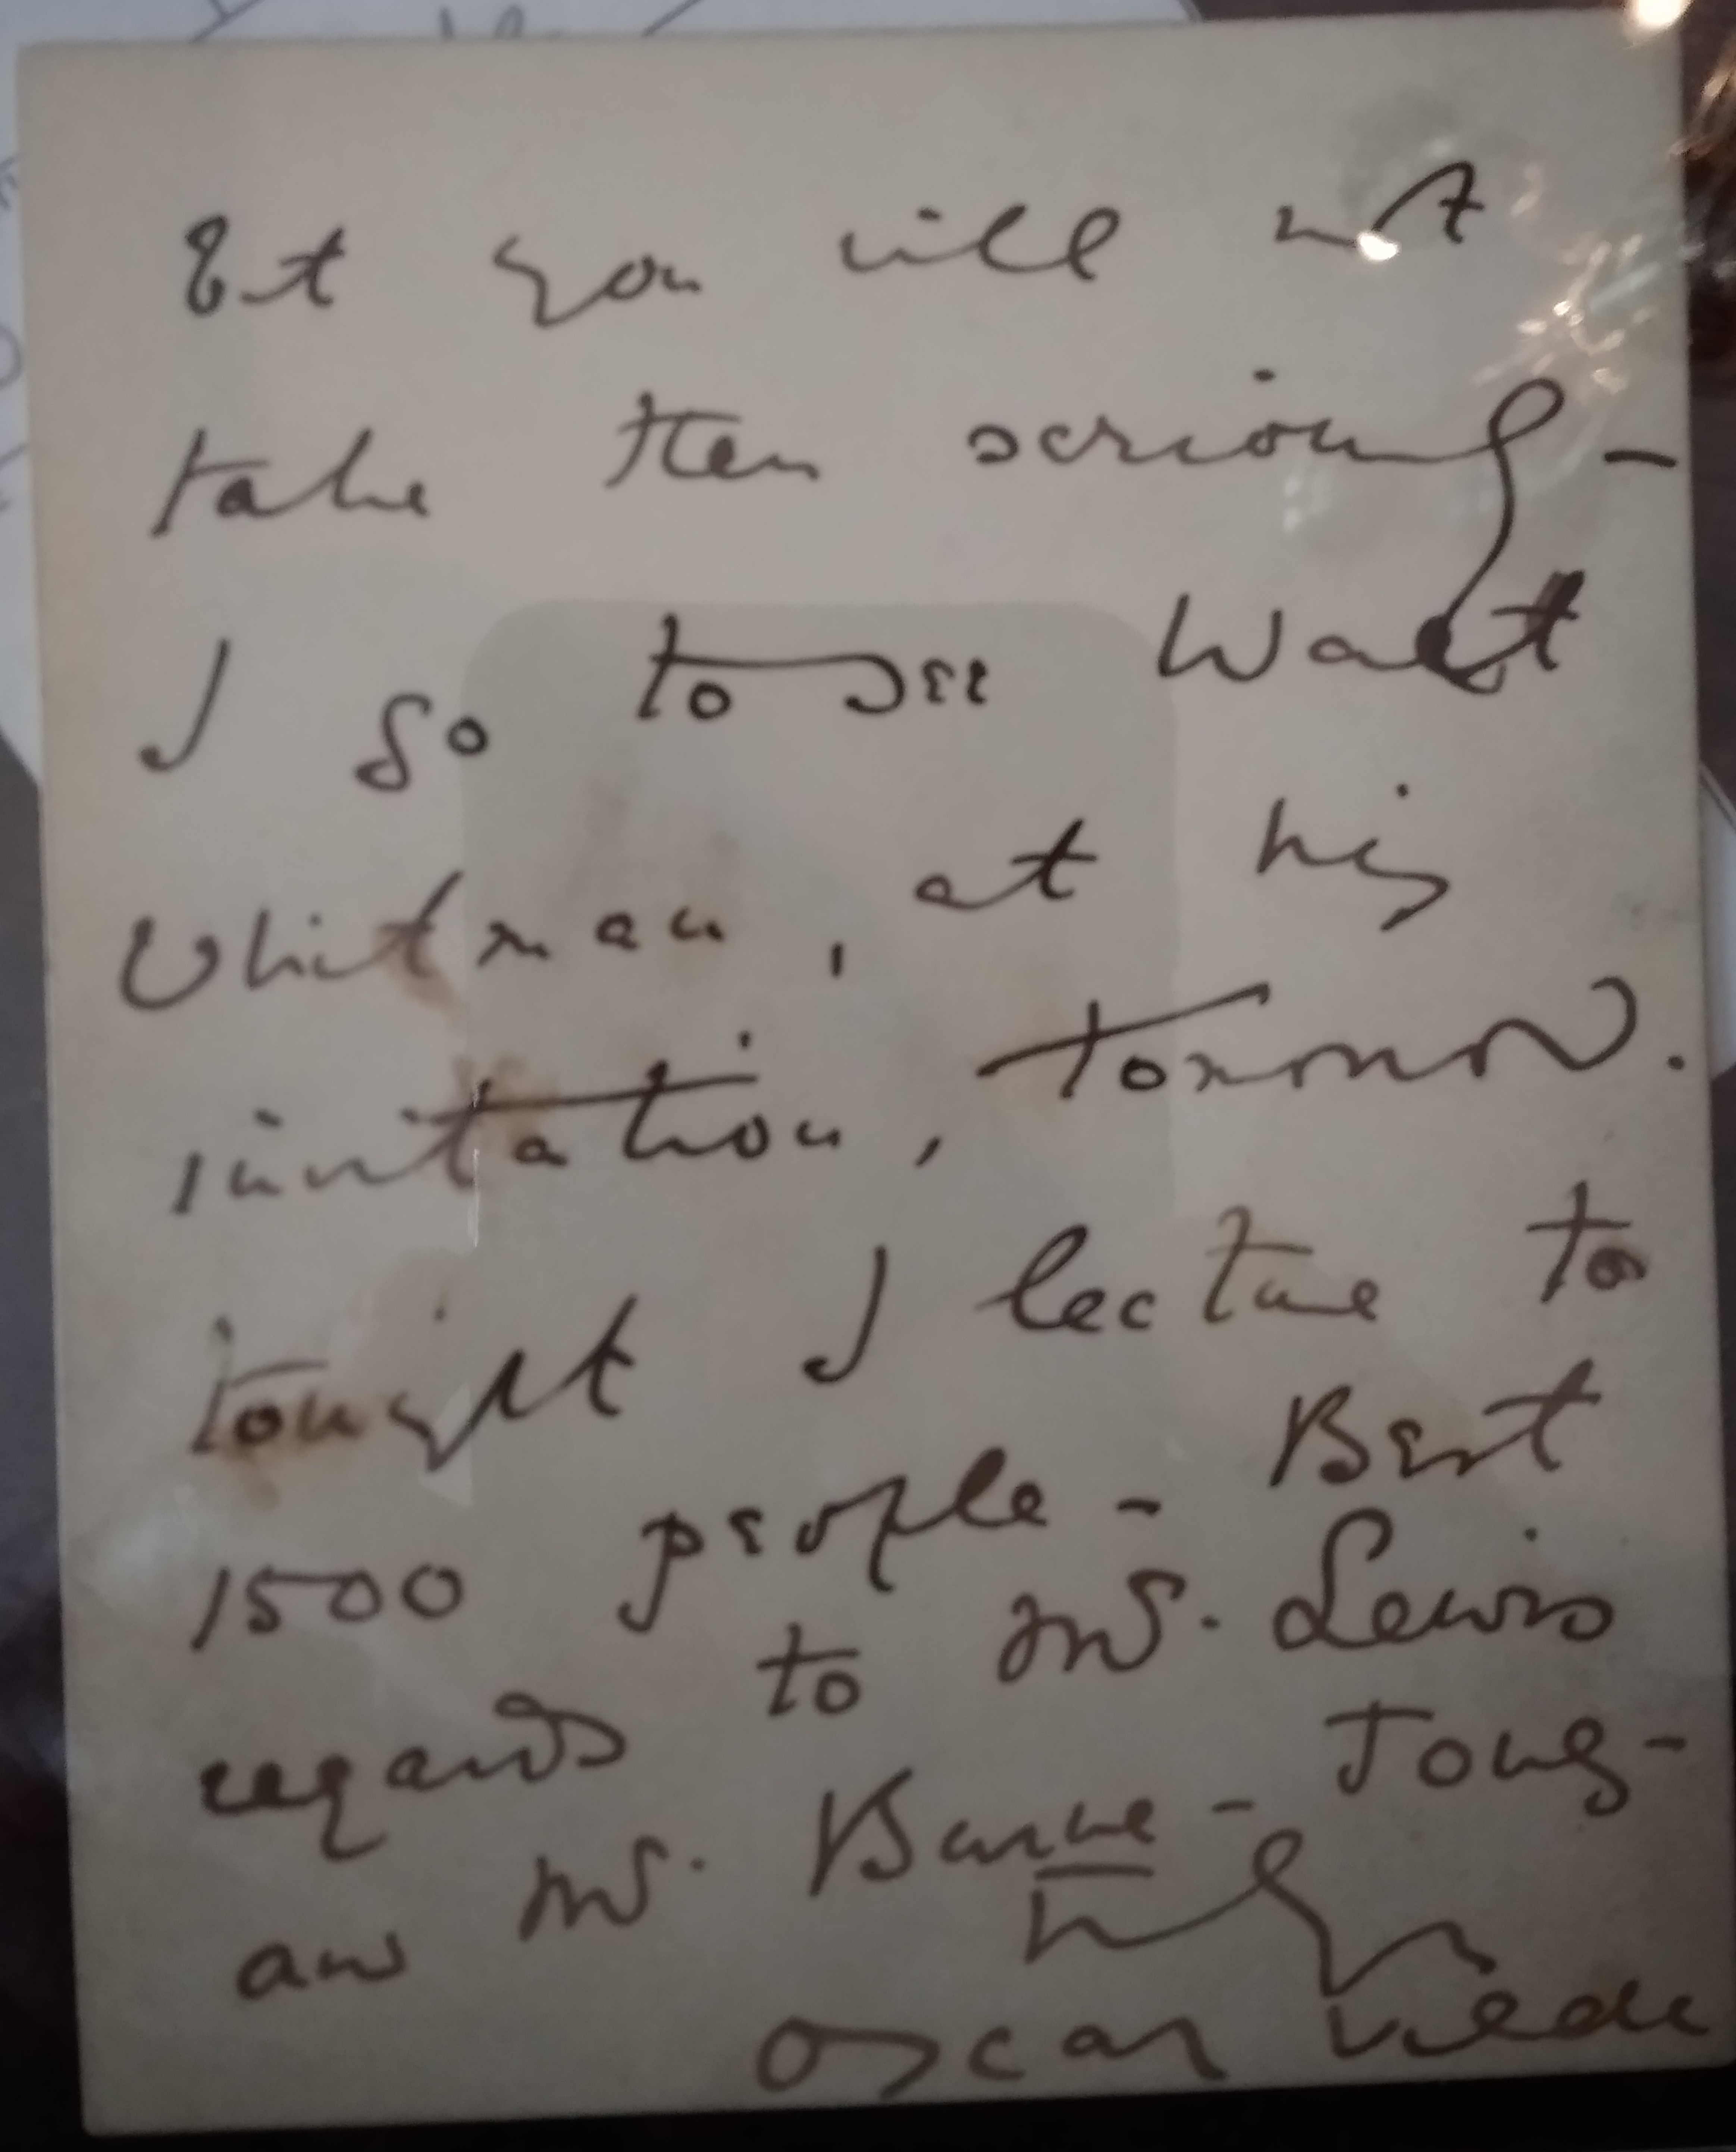 but you will not
take them seriously -
I go to see Walt
Whitman, at his
invitation, tomorrow.
Tonight I lecture to
1500 people - Best
regards to Mrs. Lewis
and Mrs. Burne - Jones -
Oscar Wilde